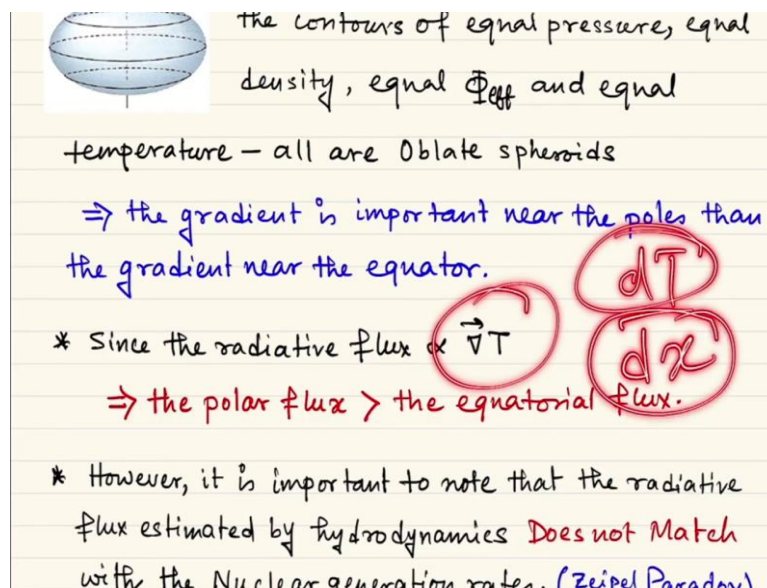 the contours of equal pressure, equal
density, equal Φeff and equal
temperature – all are Oblate spheroids
⇒ the gradient is important near the poles than
the gradient near the equator.
dT
dx
* Since the radiative flux ∝ ∇⃗T
⇒ the polar flux > the equatorial flux.
* However, it is important to note that the radiative
flux estimated by hydrodynamics Does not Match
with the Nuclear generation rates. (Zeipel Paradox)